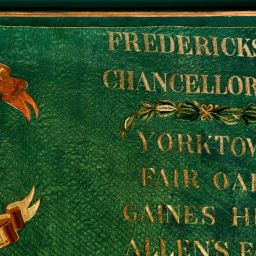 FREDERICKS
CHANCELLOR
YORKTOW
FAIR OA
GAINES H
ALLENS F